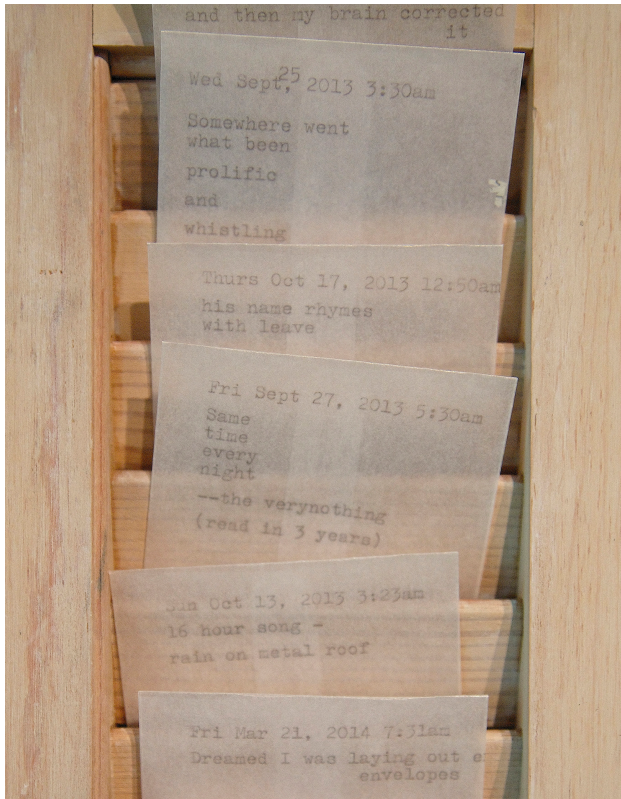 and then my brain corrected
it
Wed Sept, 25 2013 3:30am
Somewhere went
what been
prolific
and
whistling
Thurs Oct 17, 2013 12:50am
his name rhymes
with leave
Fri Sept 27, 2013 5:30am
Same
time
every
night
--the verynothing
(read in 3 years)
Sun Oct 13, 2013 3:23am
16 hour song -
rain on metal roof
Fri Mar 21, 2014 7:31am
Dreamed I was laying out e
envelopes